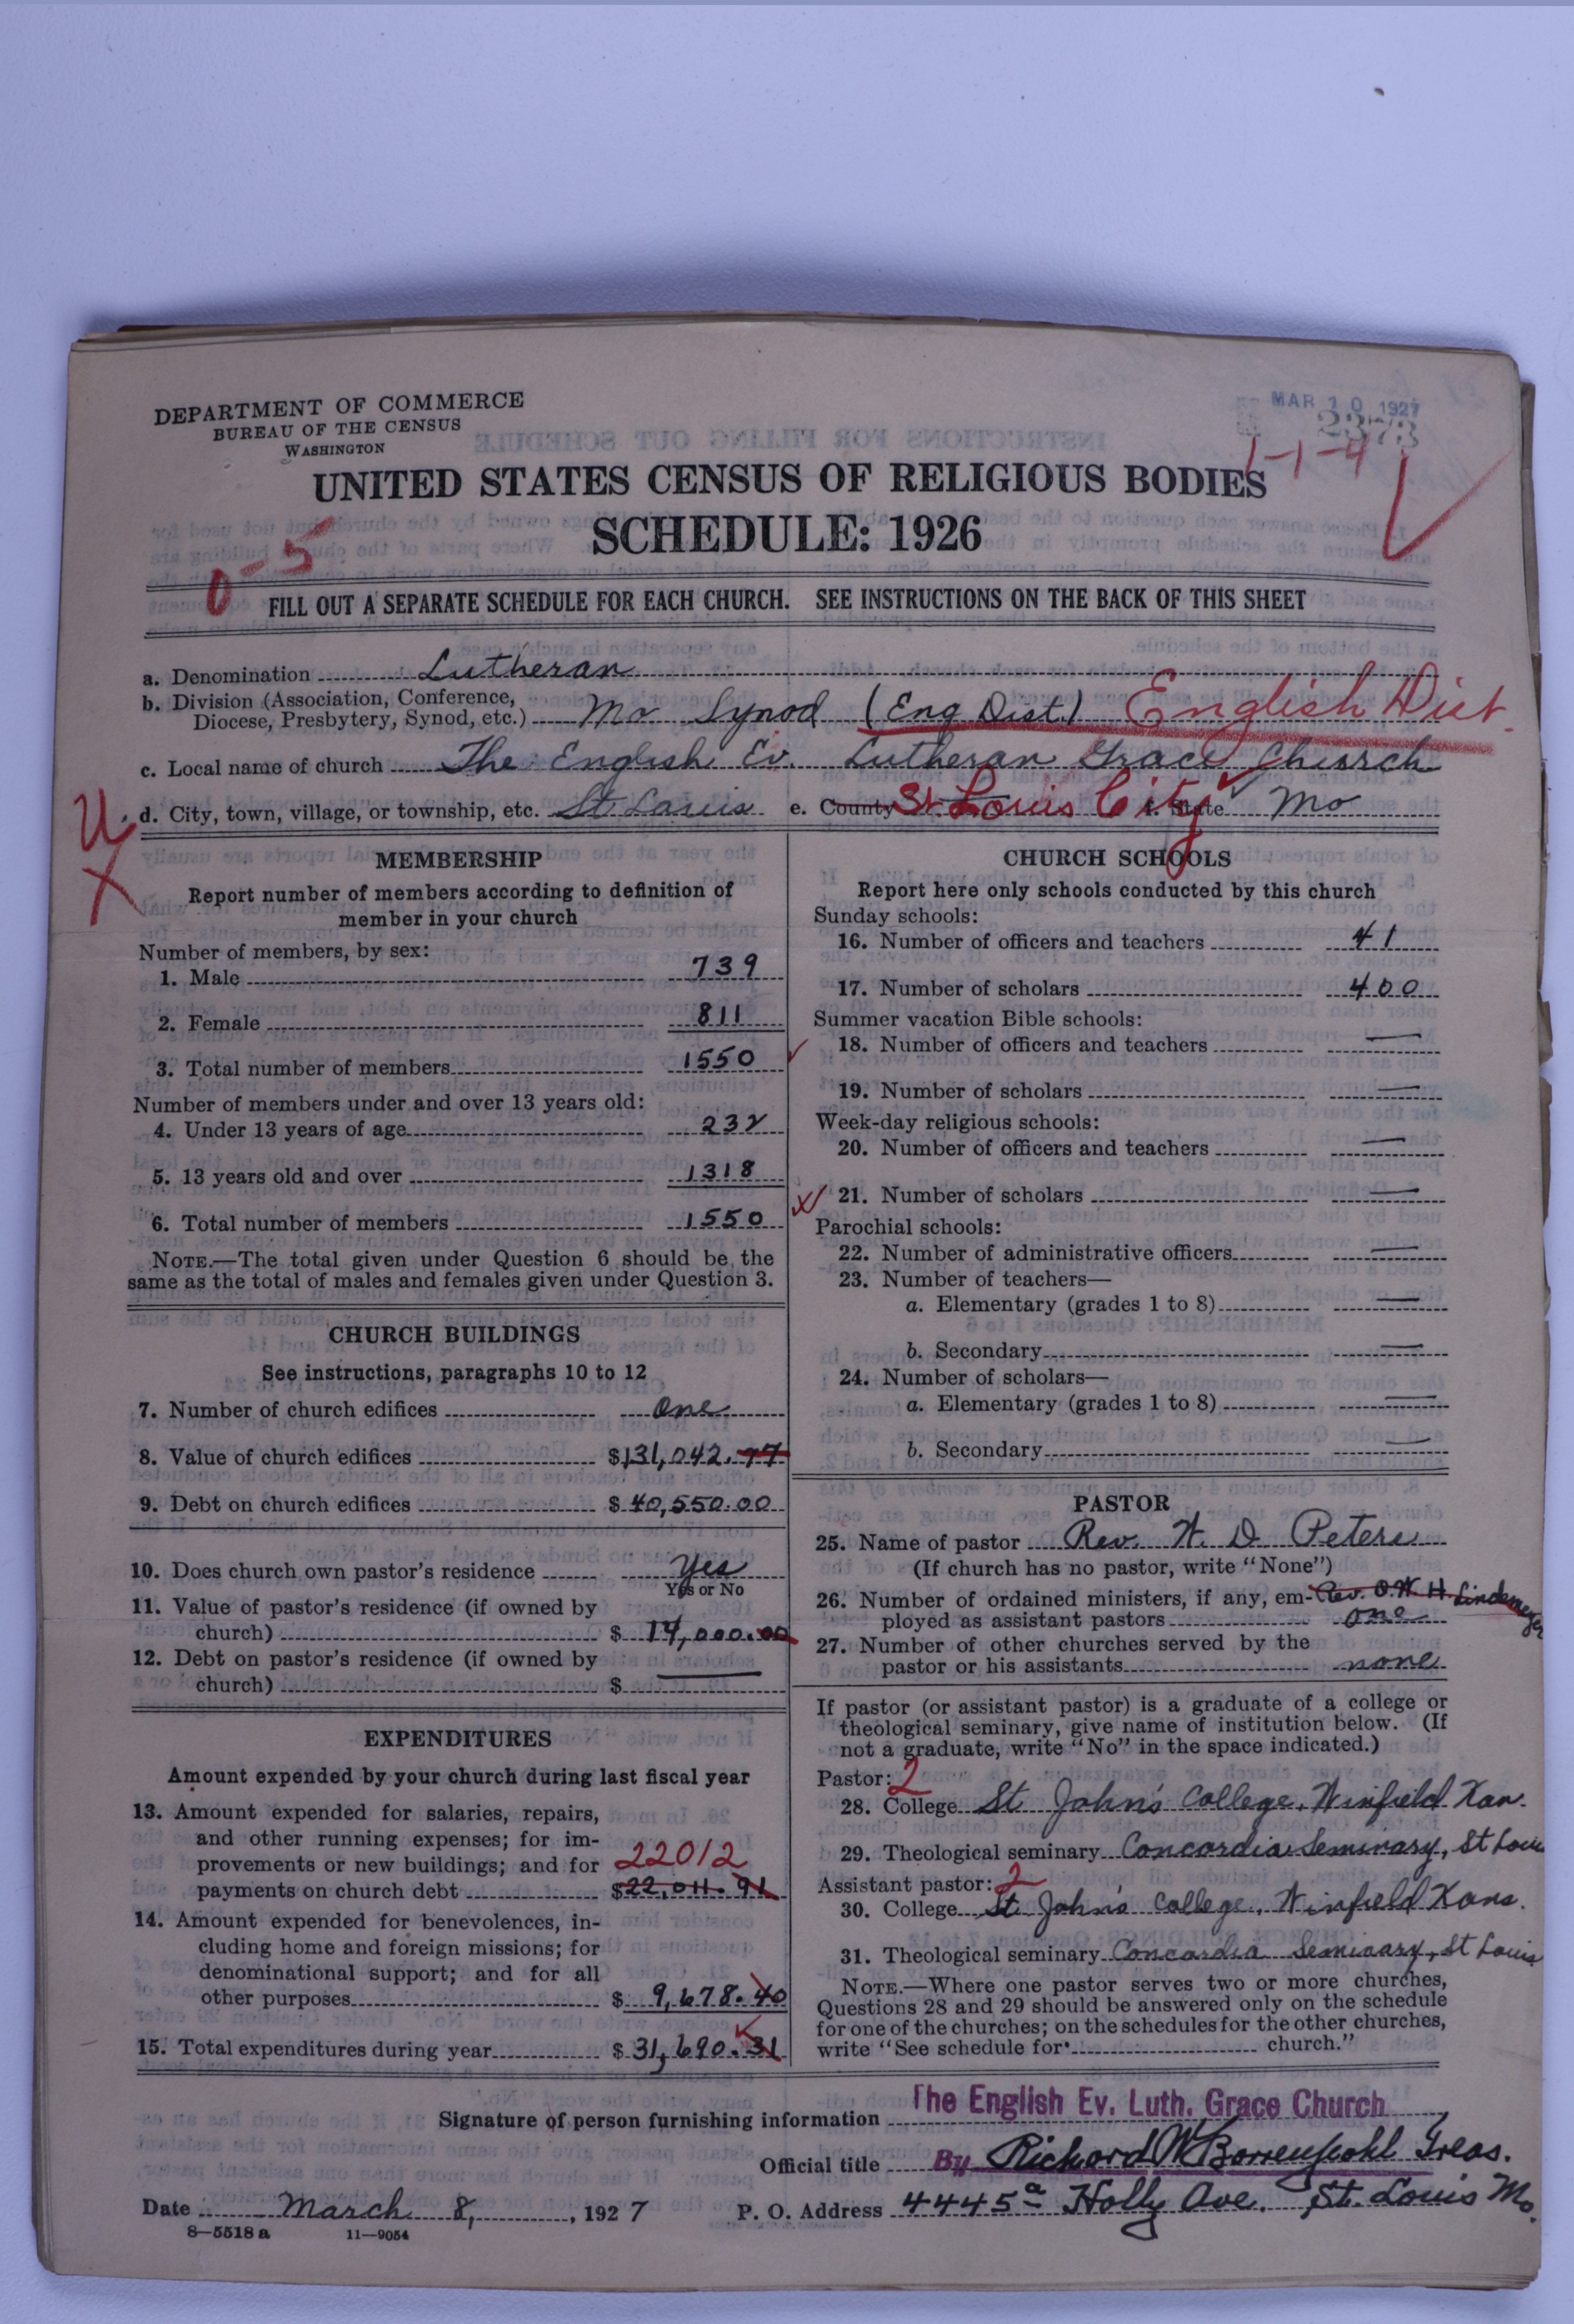 DEPARTMENT OF COMMERCE
BUREAU OF THE CENSUS
WASHINGTON
MAR 10 1927
2373
1-1-4
UNITED STATES CENSUS OF RELIGIOUS BODIES
SCHEDULE: 1926
0-5
FILL OUT A SEPARATE SCHEDULE FOR EACH CHURCH. SEE INSTRUCTIONS ON THE BACK OF THIS SHEET
a. Denomination Lutheran
b. Division (Association, Conference,
Diocese, Presbytery, Synod, etc.) Mo Synod (Eng Dist.) English Dist.
c. Local name of church The English Ev. Lutheran Grace Church
U
d. City, town, village, or township, etc. St Louis e. County St. Louis City f. State Mo
X
MEMBERSHIP
Report number of members according to definition of
member in your church
Number of members, by sex:
1. Male 739
2. Female 811
3. Total number of members 1550
Number of members under and over 13 years old:
4. Under 13 years of age 232
5. 13 years old and over 1318
6. Total number of members 1550
NOTE.—The total given under Question 6 should be the
same as the total of males and females given under Question 3.
CHURCH BUILDINGS
See instructions, paragraphs 10 to 12
7. Number of church edifices one
8. Value of church edifices $131,042.77
9. Debt on church edifices $40,550.00
10. Does church own pastor's residence Yes
Yes or No
11. Value of pastor's residence (if owned by
church) $ 14,000.00
12. Debt on pastor's residence (if owned by
church) $ —
EXPENDITURES
Amount expended by your church during last fiscal year
13. Amount expended for salaries, repairs,
and other running expenses; for im-
provements or new buildings; and for 22012
payments on church debt $22,011.91
14. Amount expended for benevolences, in-
cluding home and foreign missions; for
denominational support; and for all
other purposes $ 9,678.40
15. Total expenditures during year $31,690.31
CHURCH SCHOOLS
Report here only schools conducted by this church
Sunday schools:
16. Number of officers and teachers 41
17. Number of scholars 400
Summer vacation Bible schools:
18. Number of officers and teachers —
19. Number of scholars —
Week-day religious schools:
20. Number of officers and teachers —
21. Number of scholars —
Parochial schools:
22. Number of administrative officers —
23. Number of teachers—
a. Elementary (grades 1 to 8) —
b. Secondary —
24. Number of scholars—
a. Elementary (grades 1 to 8) —
b. Secondary —
PASTOR
25. Name of pastor Rev. W. D Peters
(If church has no pastor, write "None")
26. Number of ordained ministers, if any, em- Rev. O. W. H. Lindemeyer
ployed as assistant pastors one
27. Number of other churches served by the
pastor or his assistants none
If pastor (or assistant pastor) is a graduate of a college or
theological seminary, give name of institution below. (If
not a graduate, write "No" in the space indicated.)
Pastor: 2
28. College St John's College, Winfield Kan.
29. Theological seminary Concordia Seminary, St Louis
Assistant pastor: 2
30. College St. John's College, Winfield Kans.
31. Theological seminary Concordia Seminary, St Louis
NOTE.—Where one pastor serves two or more churches,
Questions 28 and 29 should be answered only on the schedule
for one of the churches; on the schedules for the other churches,
write "See schedule for church."
Signature of person furnishing information The English Ev. Luth. Grace Church
Official title By Richard W Borrenpohl Treas.
Date March 8, 1927 P. O. Address 4445a Holly Ave. St. Louis Mo.
8—5518a 11—9054